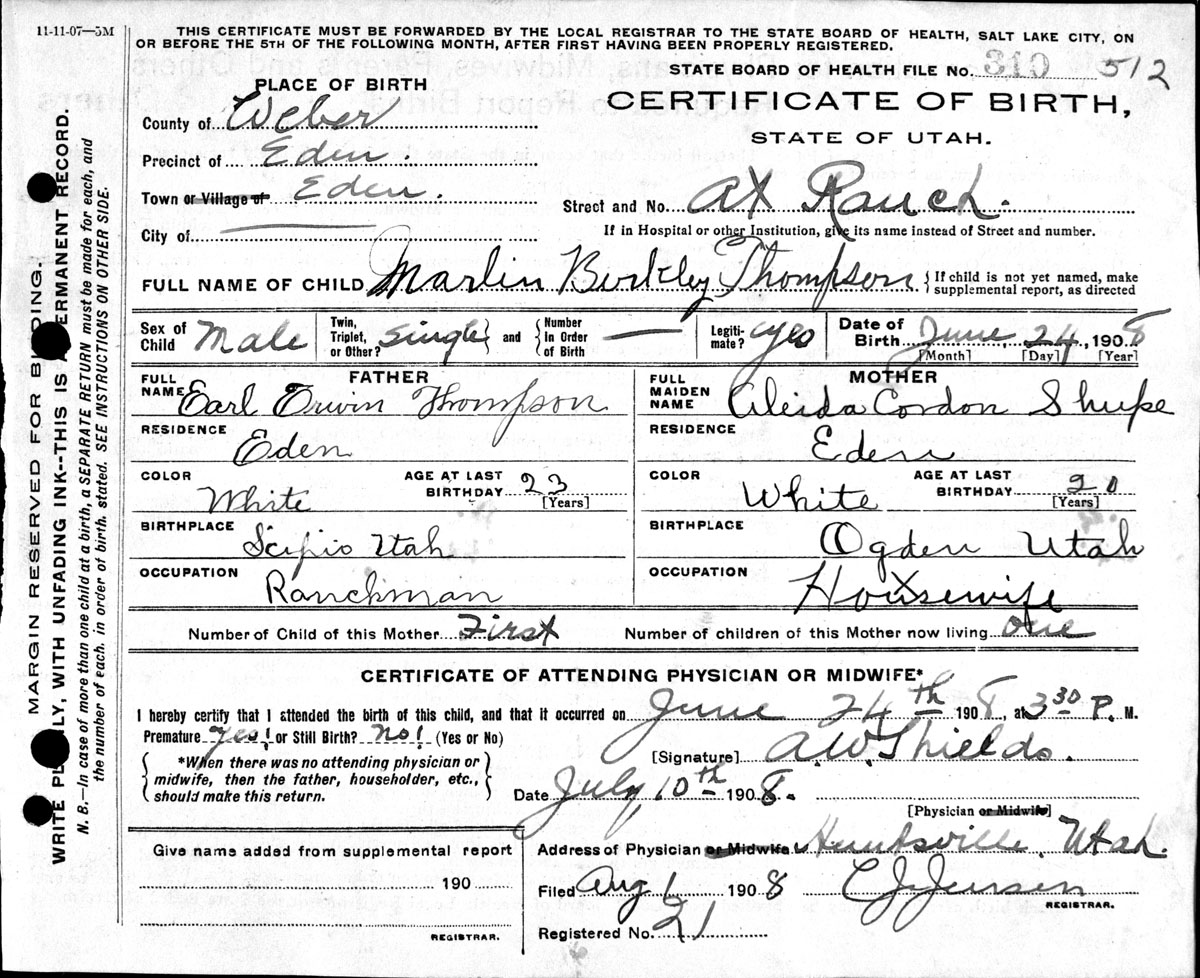 11-11-07—5M
THIS CERTIFICATE MUST BE FORWARDED BY THE LOCAL REGISTRAR TO THE STATE BOARD OF HEALTH, SALT LAKE CITY, ON
OR BEFORE THE 5TH OF THE FOLLOWING MONTH, AFTER FIRST HAVING BEEN PROPERLY REGISTERED.
STATE BOARD OF HEALTH FILE No. 310 512
PLACE OF BIRTH
CERTIFICATE OF BIRTH,
STATE OF UTAH.
County of Weber
Precinct of Eden.
Town or Village of Eden.
Street and No. At Ranch.
City of
If in Hospital or other Institution, give its name instead of Street and number.
FULL NAME OF CHILD Marlin Berkley Thompson {If child is not yet named, make
supplemental report, as directed
Sex of Child Male
Twin, Triplet, or Other? single} and {Number In Order of Birth —
Legiti-mate? yes
Date of Birth June 24, 1908
[Month] [Day] [Year]
FATHER
FULL NAME Earl Orwin Thompson
RESIDENCE
Eden
COLOR
White
AGE AT LAST
BIRTHDAY 23
[Years]
BIRTHPLACE
Scipio Utah
OCCUPATION
Ranchman
MOTHER
FULL MAIDEN NAME Aleida Cordon Shupe
RESIDENCE
Eden
COLOR
White
AGE AT LAST
BIRTHDAY 20
[Years]
BIRTHPLACE
Ogden Utah
OCCUPATION
Housewife
Number of Child of this Mother First Number of children of this Mother now living one
CERTIFICATE OF ATTENDING PHYSICIAN OR MIDWIFE*
I hereby certify that I attended the birth of this child, and that it occurred on June 24th 1908, at 3 30 P. M.
Premature yes! or Still Birth? no! (Yes or No)
[Signature] A.W. Shields.
{*When there was no attending physician or
midwife, then the father, householder, etc.,
should make this return.}
Date July 10th 1908.
[Physician or Midwife]
Give name added from supplemental report
190
REGISTRAR.
Address of Physician or Midwife Huntsville, Utah.
Filed Aug 6 1908 C J Jensen
REGISTRAR.
Registered No. 21
MARGIN RESERVED FOR BINDING.
WRITE PLAINLY, WITH UNFADING INK--THIS IS A PERMANENT RECORD.
N. B.—In case of more than one child at a birth, a SEPARATE RETURN must be made for each, and
the number of each, in order of birth, stated. SEE INSTRUCTIONS ON OTHER SIDE.